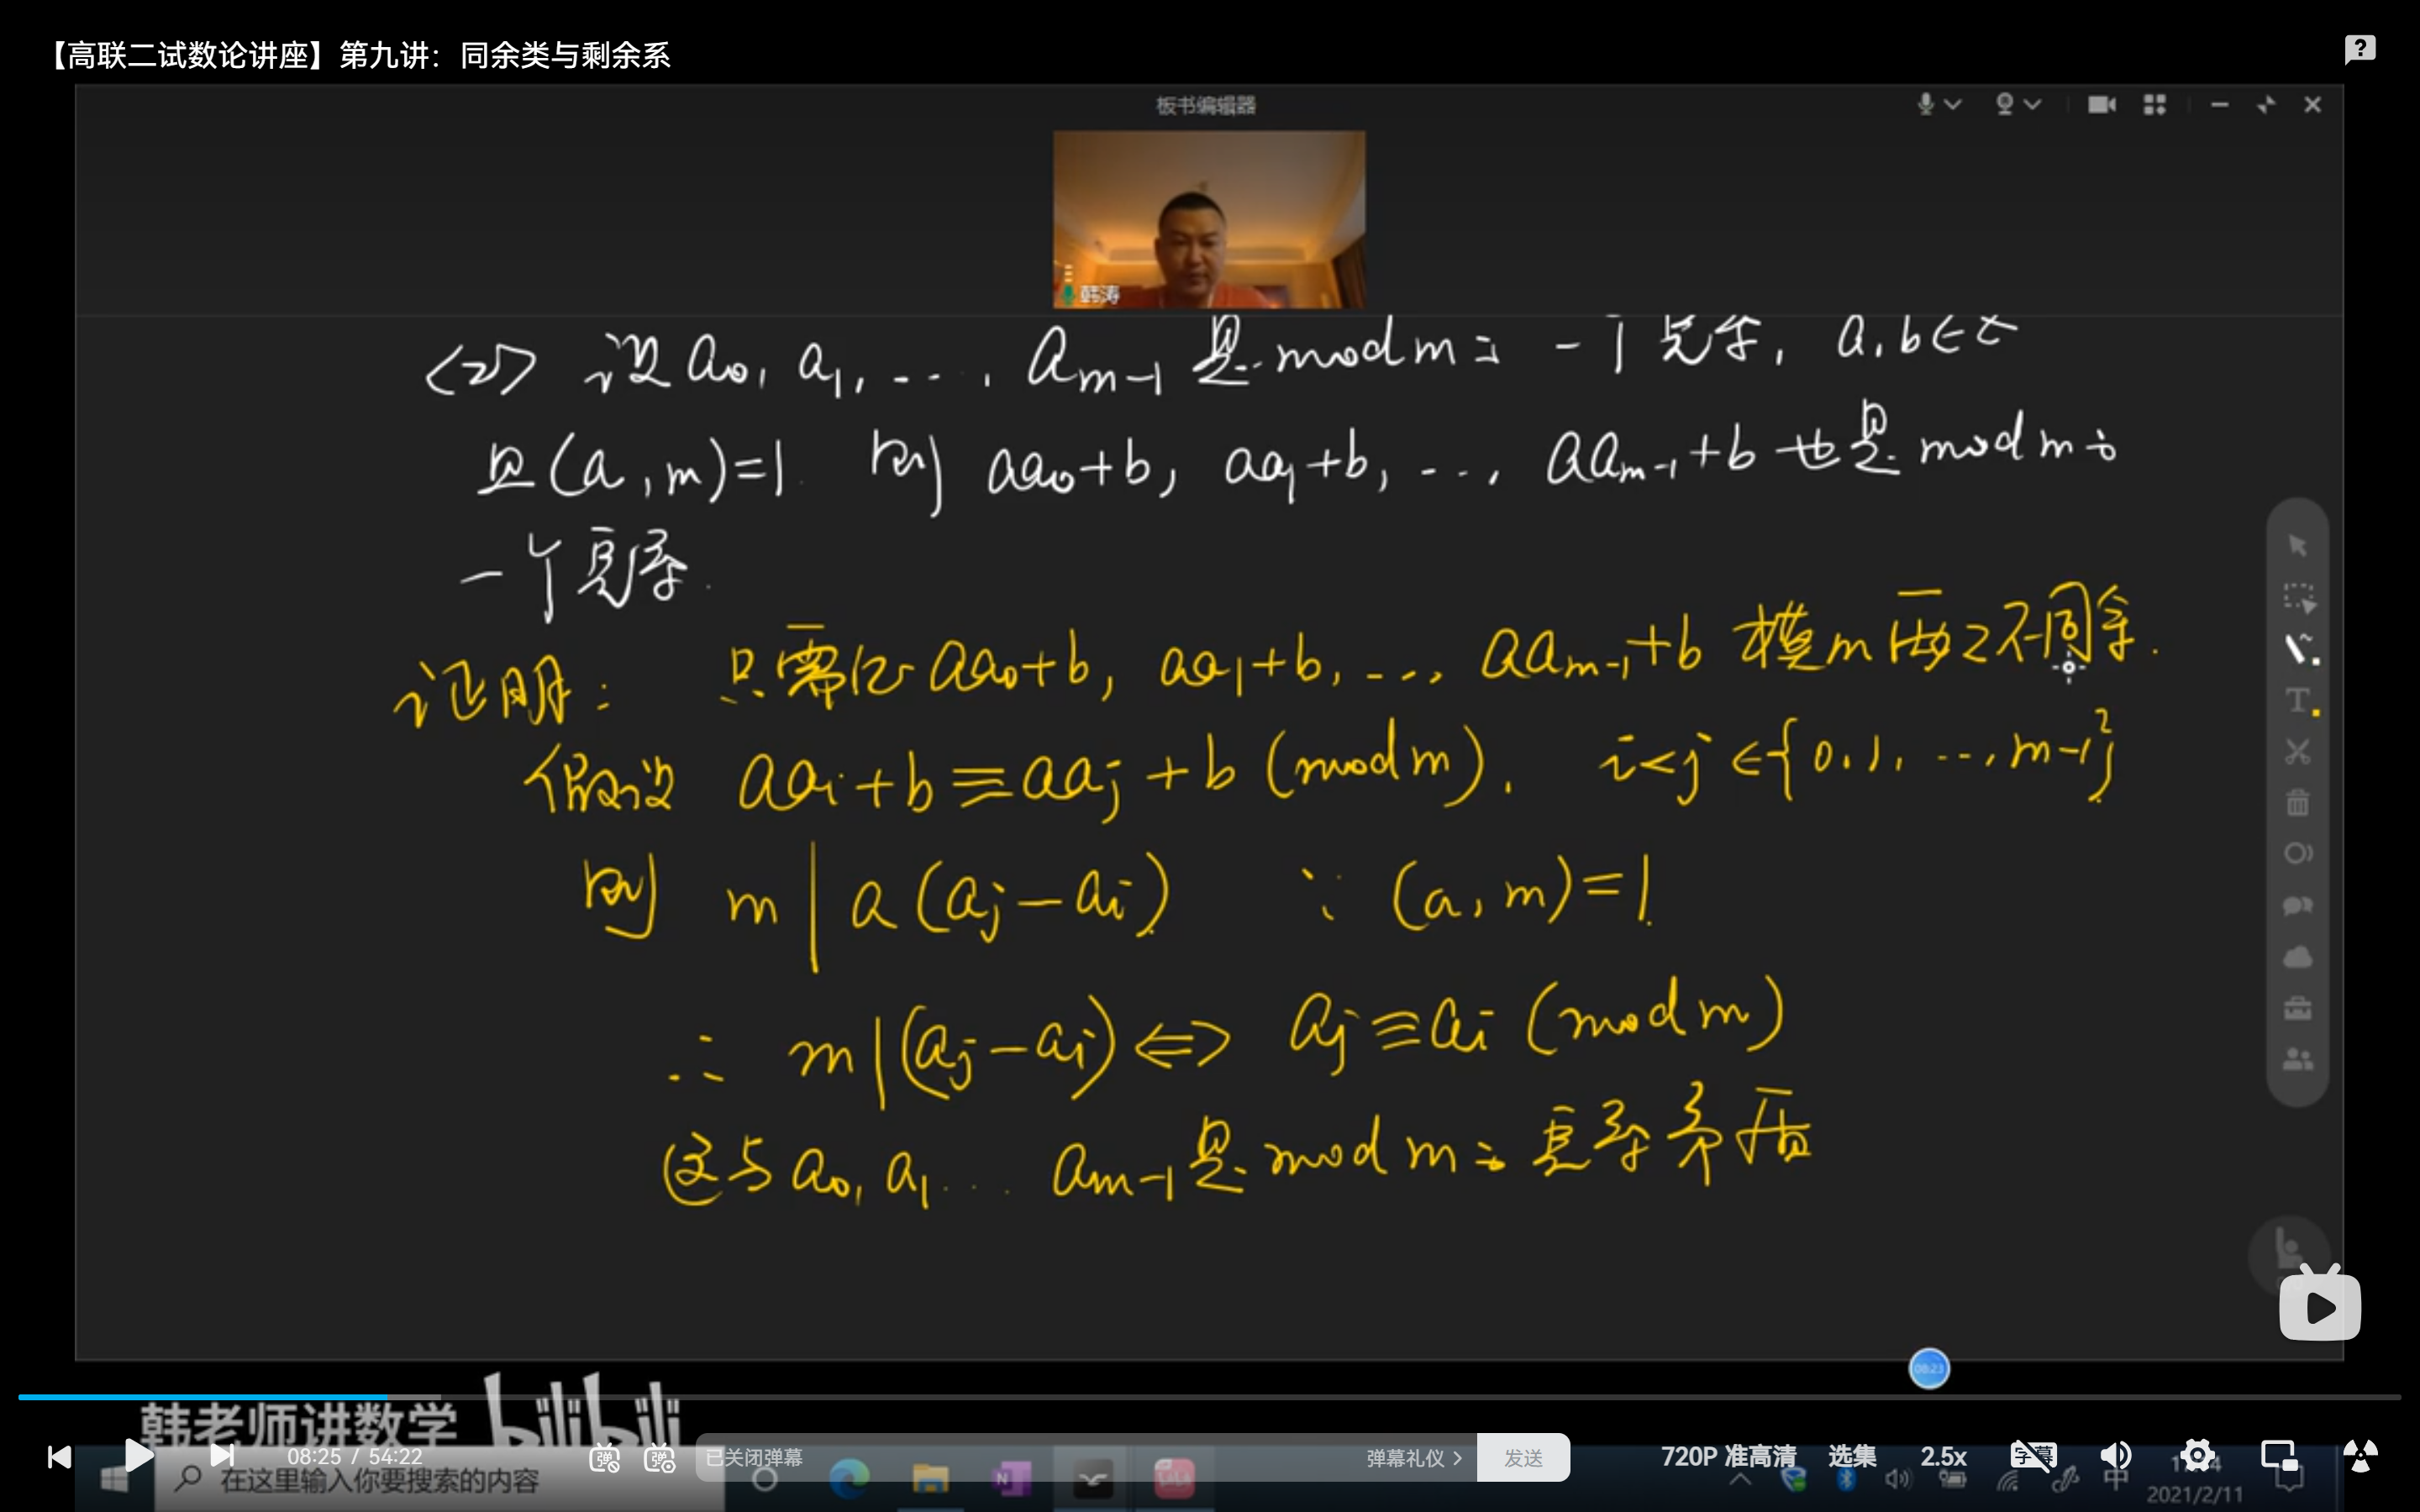 【高联二试数论讲座】第九讲：同余类与剩余系
板书编辑器
韩涛
<2> 设 a₀, a₁, ..., aₘ₋₁ 是 mod m 的一个完系, a, b∈Z
且 (a, m)=1. 则 aa₀+b, aa₁+b, ..., aaₘ₋₁+b 也是 mod m 的
一个完系.
证明： 只需证 aa₀+b, aa₁+b, ..., aaₘ₋₁+b 模 m 两两不同余.
假设 aaᵢ+b≡aaⱼ+b (mod m), i<j∈{0,1, ..., m-1}
则 m | a(aⱼ-aᵢ) ∵ (a, m)=1
∴ m|(aⱼ-aᵢ) ⇔ aⱼ≡aᵢ (mod m)
这与 a₀, a₁... aₘ₋₁ 是 mod m 的完系矛盾
08:23
韩老师讲数学 bilibili
08:25 / 54:22
弹
弹
已关闭弹幕
弹幕礼仪 >
发送
720P 准高清
选集
2.5x
字幕
在这里输入你要搜索的内容
中
2021/2/11